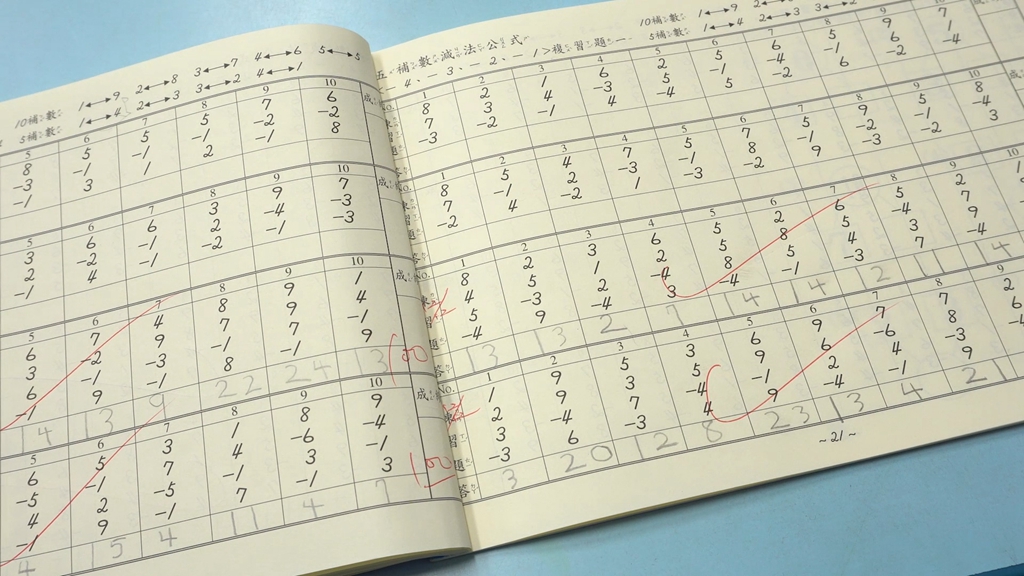 10補數 1↔9 2↔8 3↔7 4↔6 5↔5
5補數 1↔4 2↔3 3↔2 4↔1
5 6 7 8 9 10
8 5 5 5 7 6
-3 -1 -1 -1 -2 -2
-1 3 1 2 -1 8
5 6 7 8 9 10
3 6 6 3 9 7
2 -2 -1 2 -4 -3
-1 4 -1 -2 -1 -3
5 6 7 8 9 10
6 7 4 8 9 1
3 -2 9 7 9 4
6 -1 -3 -1 7 -1
-1 9 -1 8 -1 9
14 13 9 22 24 13
100
5 6 7 8 9 10
6 5 3 1 8 9
-5 -1 7 4 -6 -4
4 2 -5 -1 3 -1
-1 9 -1 7 -1 3
4 15 4 11 4 7
100
五補數減法公式
10補數 1↔9
5補數 1↔4 2↔3 3↔2
-4、-3、-2、-1>複習題一
1 2 3 4 5 6 7 8 9 10
8 2 1 6 2 5 6 5 9 7
7 3 4 -3 5 -1 -4 -1 6 1
-3 -2 -1 4 -4 5 -2 6 -2 -4
1 2 3 4 5 6 7 8 9 10
8 5 4 7 5 7 5 9 5 8
7 -1 2 -3 -1 8 -1 -2 -1 -4
-2 4 -2 1 -3 -2 9 -3 -2 3
No. 1 2 3 4 5 6 7 8 9 10
8 2 3 6 5 2 6 5 2
4 5 1 2 5 8 5 -4 7
5 -3 2 -4 8 5 4 3 9
-4 9 -4 3 -4 -1 -3 7 -4
13 13 2 7 14 14 12 11 14
No. 1 2 3 4 5 6 7 8 9
1 9 5 3 6 9 7 7 2
2 9 3 5 9 6 -6 8 6
3 -4 7 -4 -1 2 4 -3 -4
-3 6 -3 4 9 -4 -1 9
3 20 12 8 23 13 4 21
~21~